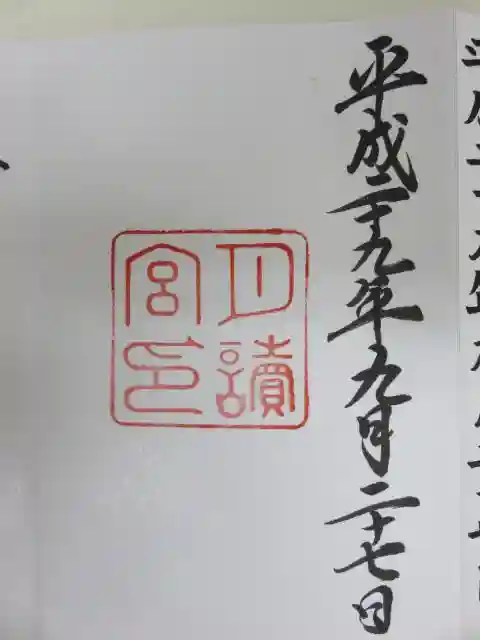 平成二十九年九月二十七日
月讀
宮印